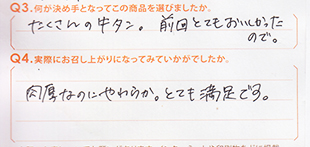 Q3.何が決め手となってこの商品を選びましたか。
たくさんの牛タン。前回とてもおいしかった
ので。
Q4.実際にお召し上がりになってみていかがでしたか。
肉厚なのにやわらか。とても満足です。